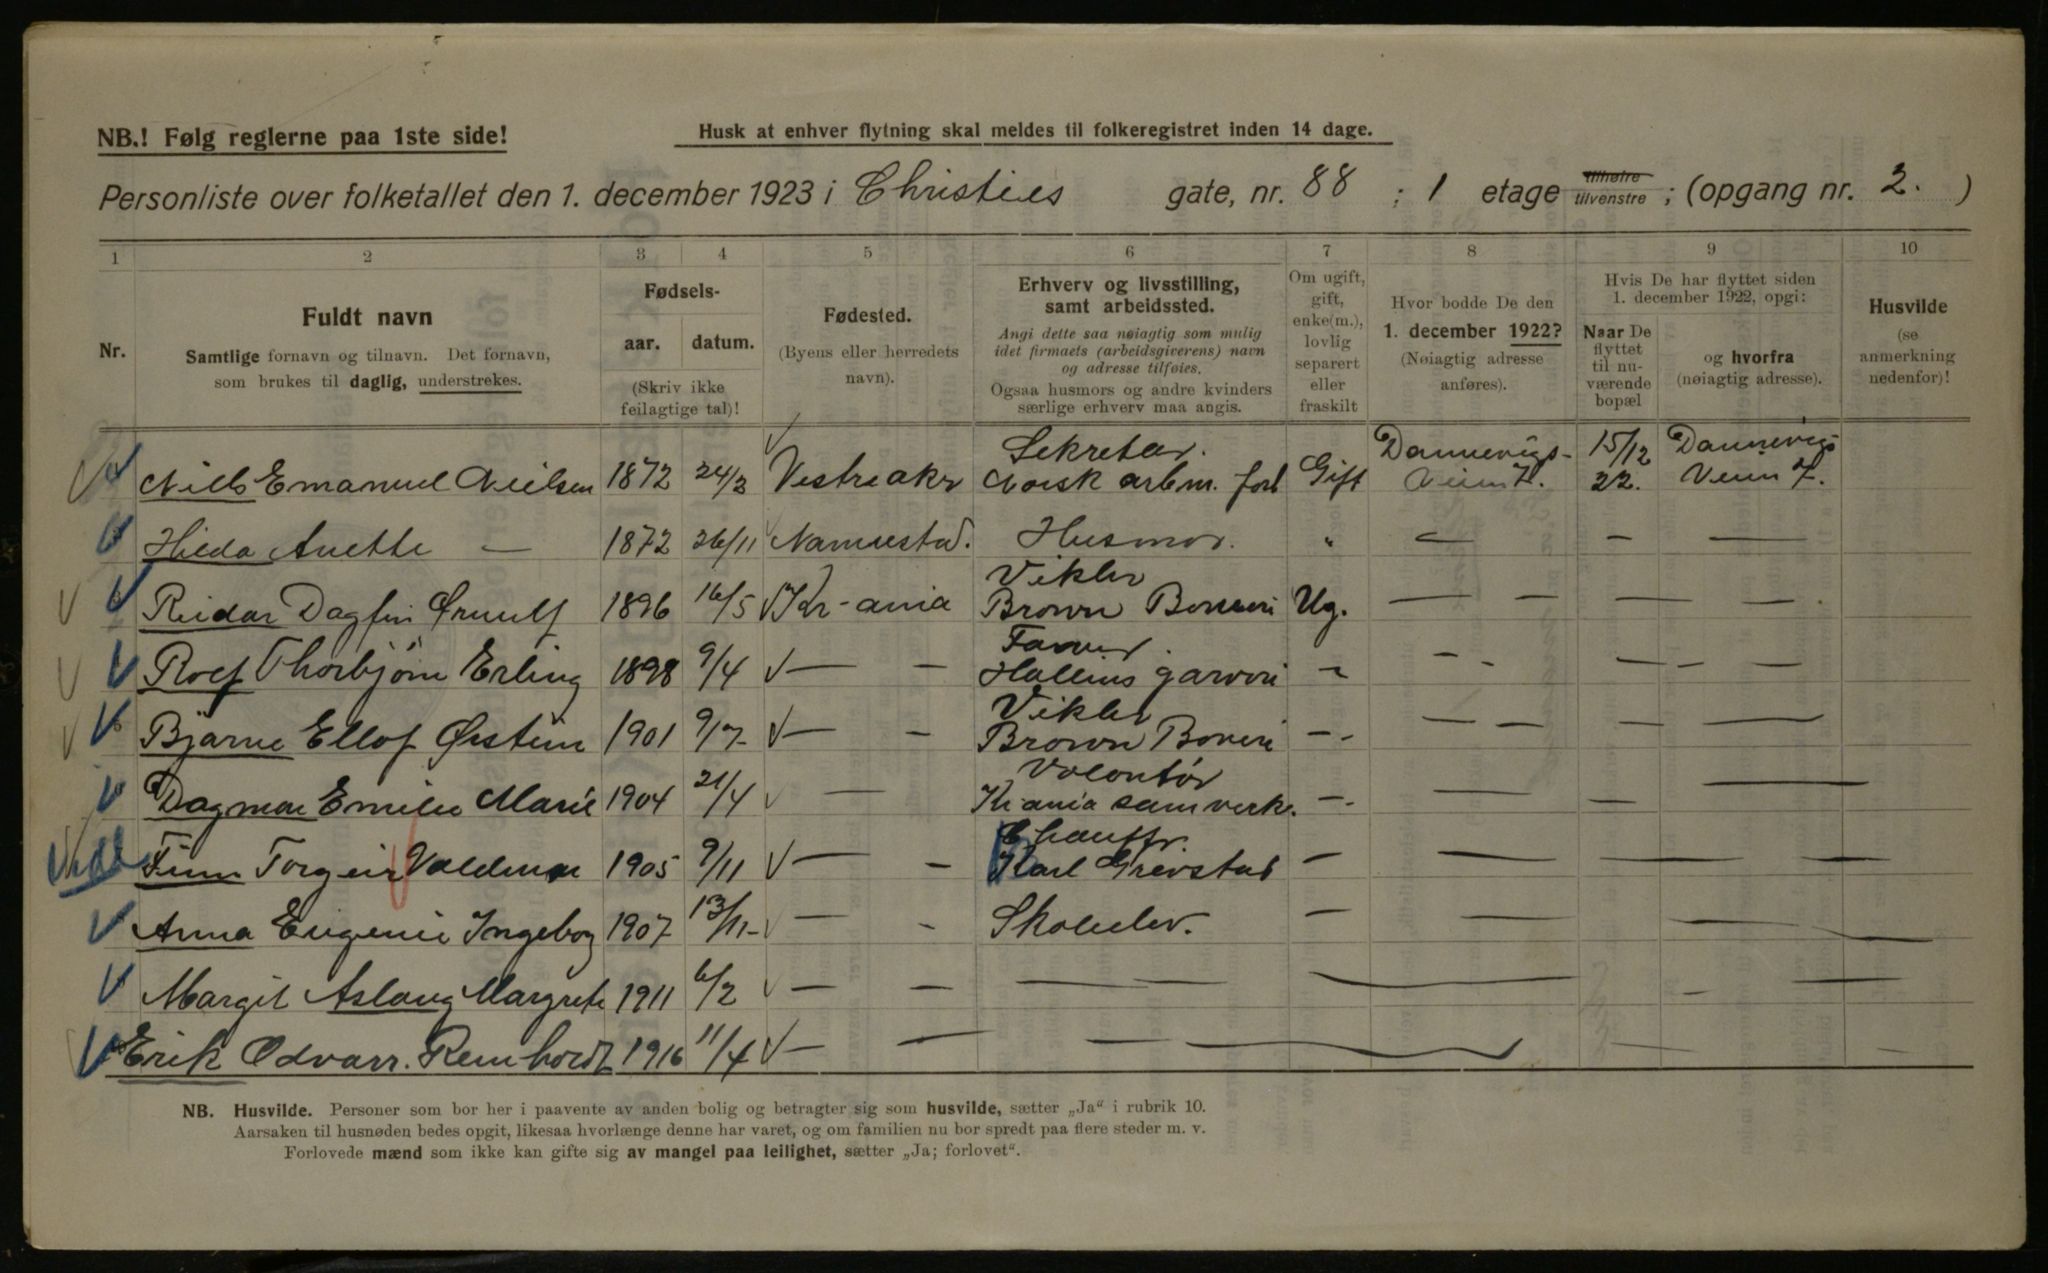 NB.! Følg reglerne paa 1ste side!
Husk at enhver flytning skal meldes til folkeregistret inden 14 dage.
Personliste over folketallet den 1. december 1923 i Christies gate, nr. 88 ; 1 etage tilhøire tilvenstre ; (opgang nr. 2. )
1 2 3 4 5 6 7 8 9 10
Nr.
Fuldt navn
Samtlige fornavn og tilnavn. Det fornavn,
som brukes til daglig, understrekes.
Fødsels-
aar. datum.
(Skriv ikke
feilagtige tal)!
Fødested.
(Byens eller herredets
navn).
Erhverv og livsstilling,
samt arbeidssted.
Angi dette saa nøiagtig som mulig
idet firmaets (arbeidsgiverens) navn
og adresse tilføies.
Ogsaa husmors og andre kvinders
særlige erhverv maa angis.
Om ugift,
gift,
enke(m.),
lovlig
separert
eller
fraskilt
Hvor bodde De den
1. december 1922?
(Nøiagtig adresse
anføres).
Hvis De har flyttet siden
1. december 1922, opgi:
Naar De
flyttet
til nu-
værende
bopæl
og hvorfra
(nøiagtig adresse).
Husvilde
(se
anmerkning
nedenfor)!
Sekretær. Dannevigs- 15/12 Dannevigs
Nills Emanuel Nielsen 1872 24/3 Vestreakr Norsk arbm. forb Gift Veien 7. 22. Veien 7.
Hilda Anette — 1872 26/11 Husmor. " — — —
Vikler
Reidar Dagfin Ørnulf 1896 16/5 Kr-ania Brown Boveri Ug. — — — — —
Farver.
Rolf Thorbjørn Erling 1898 9/4 — — Hallins garveri " — — — —
Vikler
Bjarne Ellof Østein 1901 9/7 — — Brown Boveri — — — — —
Volontør
Dagmar Emilie Marie 1904 21/4 — Kr ania samverk. — — — —
Chauffr.
Finn Torgeir Valdemar 1905 9/11 — — Karl Grevstad — — — — —
Anna Eugenie Ingeborg 1907 13/11 — — Skoleelev. — — — —
Margit Aslaug Margrete 1911 6/2 — — — — — — —
Erik Odvarr. Reinholdt 1916 11/4 — — — — — —
NB. Husvilde. Personer som bor her i paavente av anden bolig og betragter sig som husvilde, sætter „Ja“ i rubrik 10.
Aarsaken til husnøden bedes opgit, likesaa hvorlænge denne har varet, og om familien nu bor spredt paa flere steder m. v.
Forlovede mænd som ikke kan gifte sig av mangel paa leilighet, sætter „Ja; forlovet“.